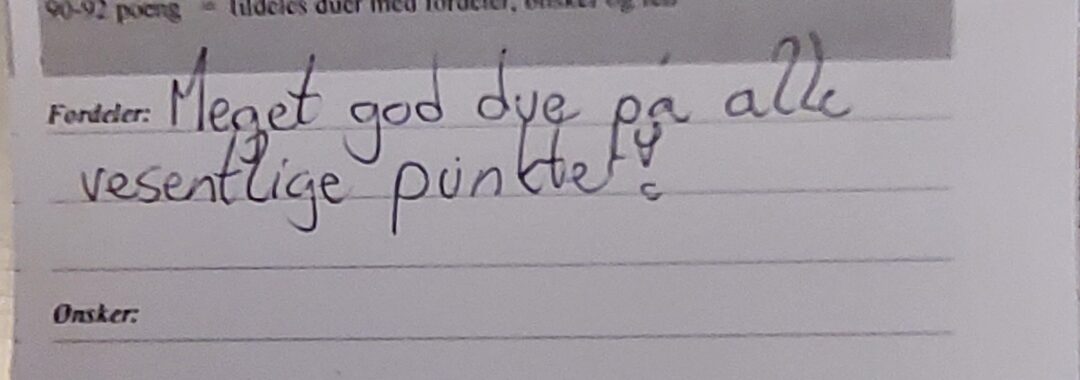 90-92 poeng = tildeles duer med fordeler, ønsker og feil
Fordeler: Meget god dye på alle
vesentlige punkter!
Ønsker: